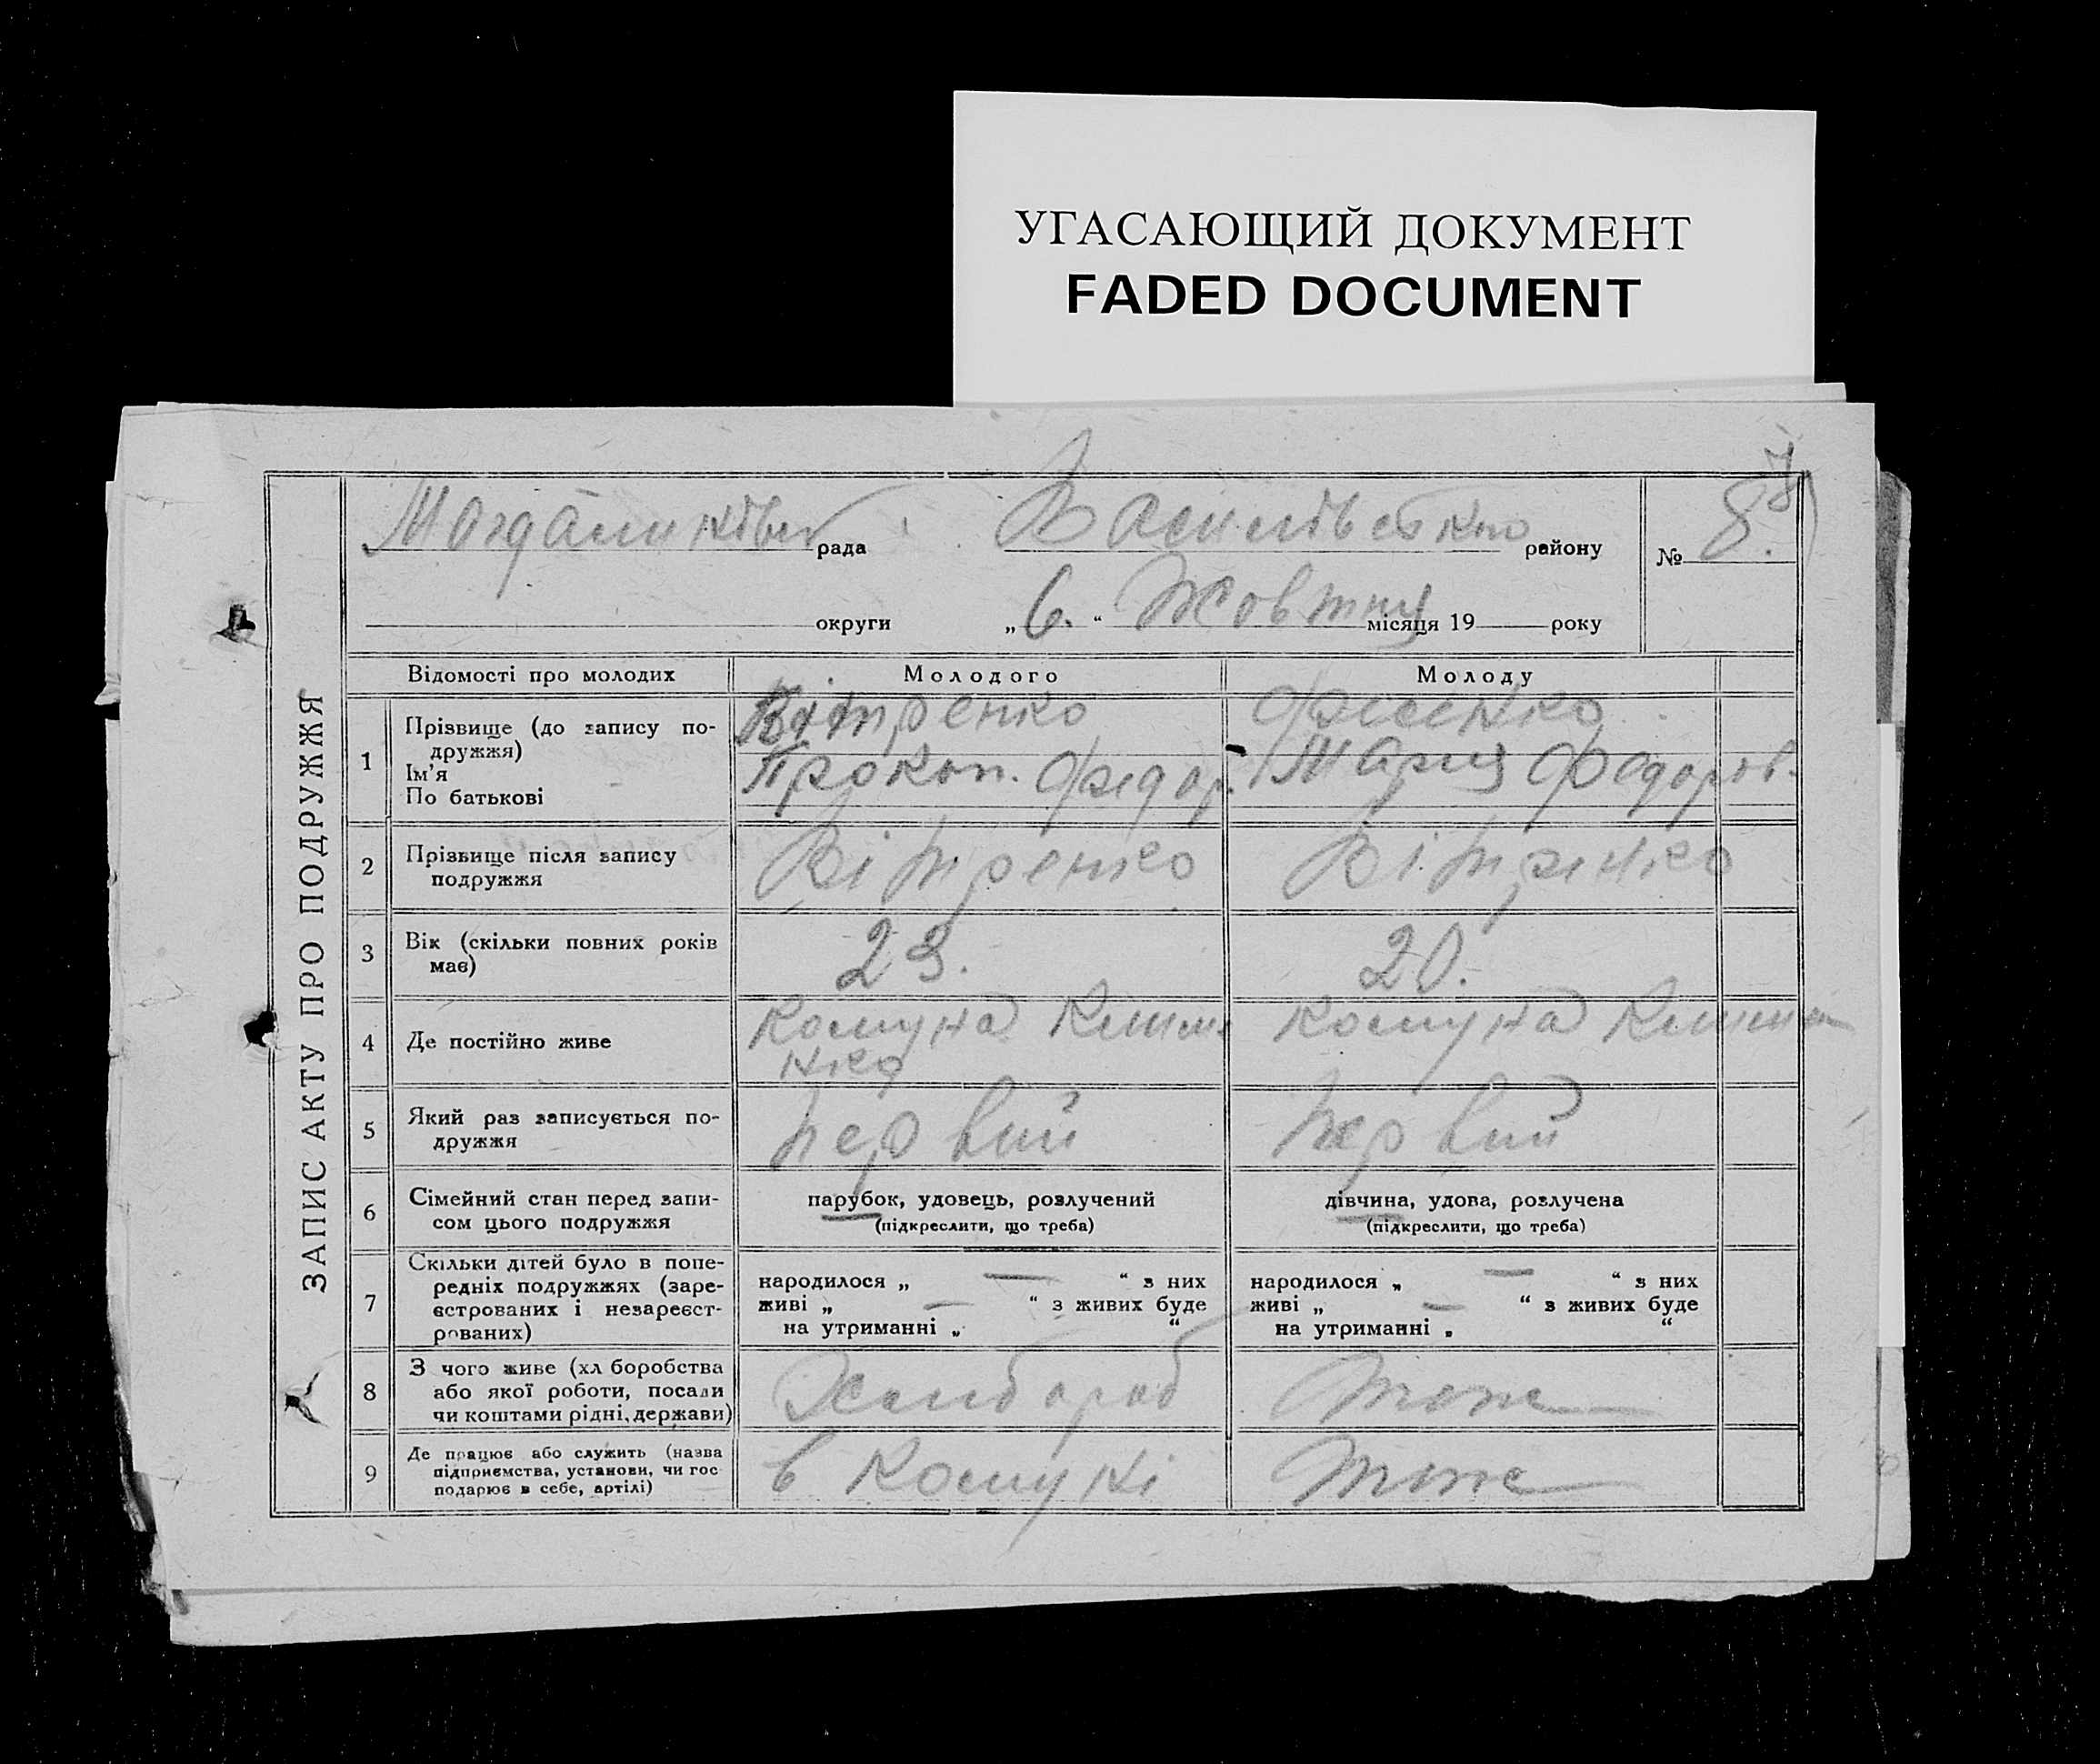 УГАСАЮЩИЙ ДОКУМЕНТ
FADED DOCUMENT
ЗАПИС АКТУ ПРО ПОДРУЖЖЯ
рада району № 8.
округи „ 6. “ Жовтня місяця 19 року
Відомості про молодих Молодого Молоду
1 Прізвище (до запису по-
дружжя)
Ім’я
По батькові
Вітренко
Прокоп. Федор. Мария Федоров.
2 Прізвище після запису
подружжя
Вітренко Вітренко
3 Вік (скільки повних років
має)
23. 20.
4 Де постійно живе
комуна комуна
5 Який раз записується по-
дружжя
первий первий
6 Сімейний стан перед запи-
сом цього подружжя
парубок, удовець, розлучений
(підкреслити, що треба)
дівчина, удова, розлучена
(підкреслити, що треба)
7 Скільки дітей було в попе-
редніх подружжях (заре-
єстрованих і незареєст-
рованих)
народилося „ — “ з них
живі „ — “ з живих буде
на утриманні „ “
народилося „ — “ з них
живі „ — “ з живих буде
на утриманні „ “
8 З чого живе (хл боробства
або якої роботи, посади
чи коштами рідні, держави)
Хлибороб тоже
9 Де працює або служить (назва
підприємства, установи, чи гос
подарює в себе, артілі)
в комуні тоже